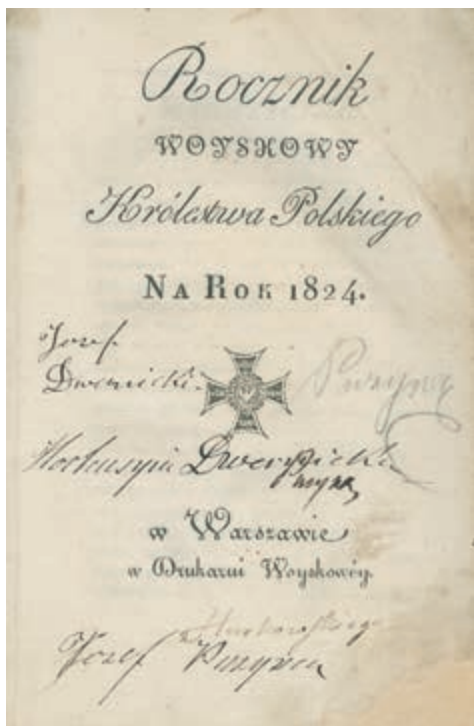 Rocznik
WOYSKOWY
Królestwa Polskiego
NA ROK 1824.
Jozef
Dwernicki.
Puzyna
Hortensyia Dwernicka
w Warszawie
w Drukarni Woyskowéy.
Jozef Puzyna